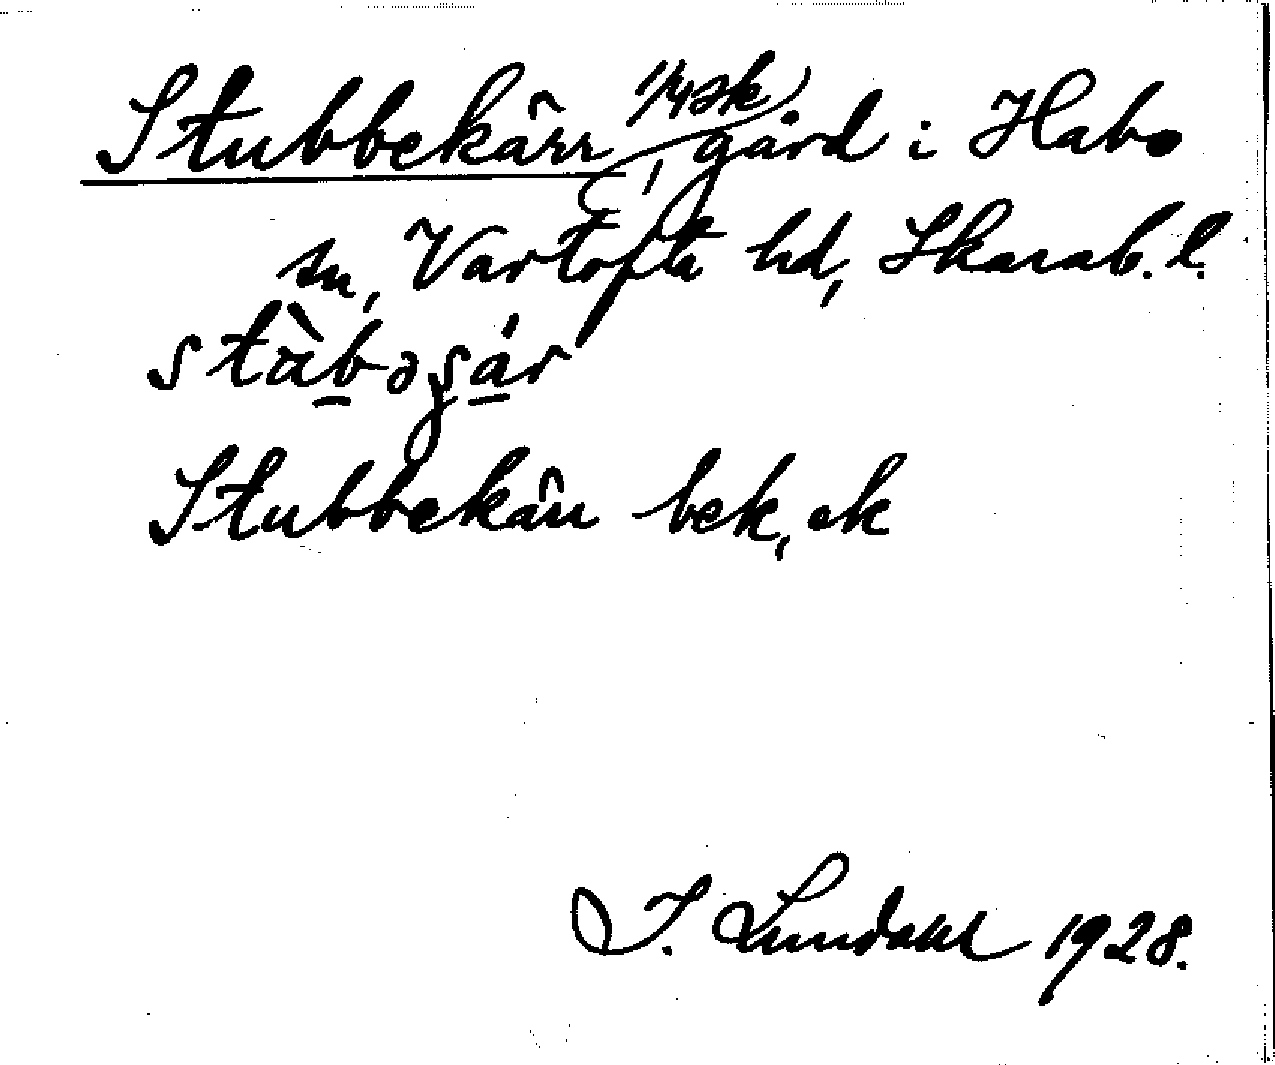 Stubbekärr, 1/4 sk gård i Habo
sn, Vartofta hd, Skarab. l.
Stubbekärr bek, ek
I. Lundahl 1928.